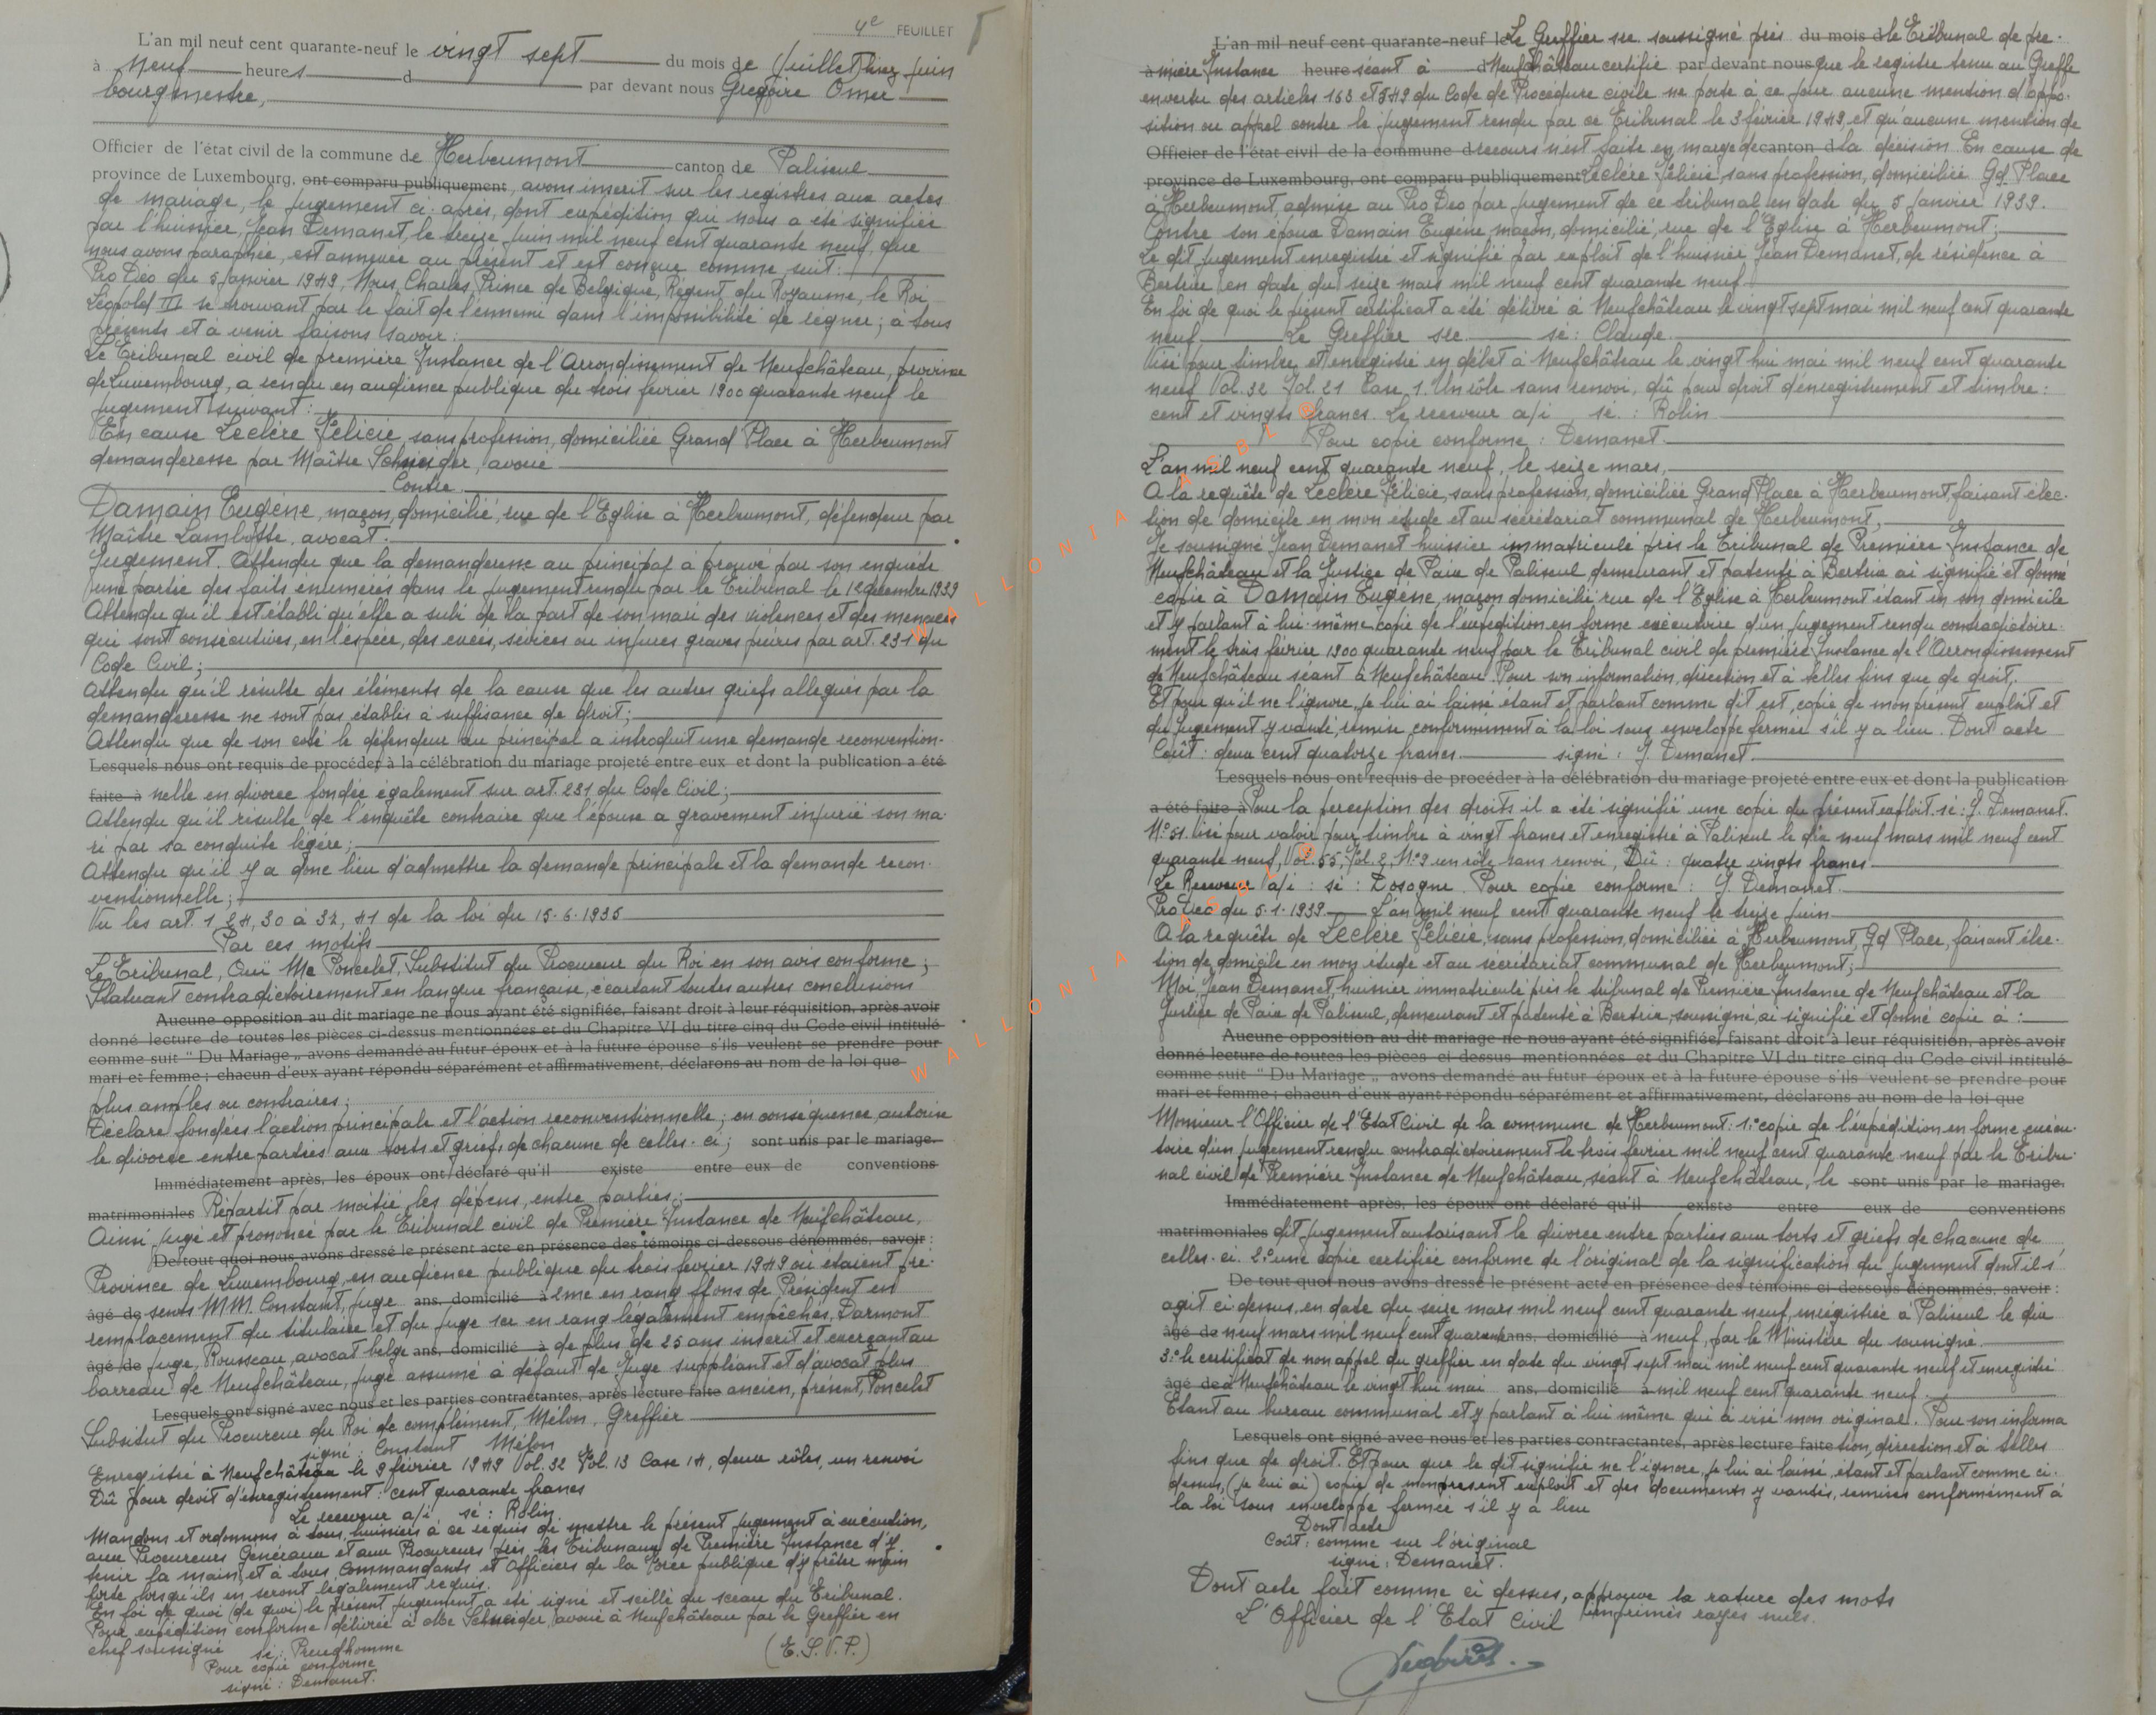 4e FEUILLET
L'an mil neuf cent quarante-neuf le vingt sept du mois de Juillet Juin
à neuf heures d par devant nous Gregoire Omer
bourgmestre,
Officier de l'état civil de la commune de Herbeumont canton de Paliseul
province de Luxembourg, ont comparu publiquement, avons inscrit sur les registres aux actes
de mariage, le jugement ci-après, dont expédition qui nous a été signifiée
par l'huissier, Jean Demanet, le treize Juin mil neuf cent quarante neuf, que
nous avons paraphée, est annexée au présent et est conçue comme suit :
Pro Deo du 5 Janvier 1949, Nous, Charles, Prince de Belgique, Régent du Royaume, le Roi
Léopold III se trouvant par le fait de l'ennemi dans l'impossibilité de régner ; à tous
présents et à venir faisons savoir :
Le Tribunal civil de première Instance de l'Arrondissement de Neufchâteau, province
de Luxembourg, a rendu en audience publique du trois février 1900 quarante neuf le
jugement suivant :
En cause Leclère Félicie, sans profession, domiciliée Grand Place à Herbeumont
demanderesse par Maître Schneider, avoué
Contre
Damain Eugène, maçon, domicilié, rue de l'Eglise à Herbeumont, défendeur par
Maître Lambotte, avocat.
Jugement. Attendu que la demanderesse au principal à prouvé par son enquête
une partie des faits énumérés dans le jugement rendu par le Tribunal le 12 décembre 1939
Attendu qu'il est établi qu'elle a subi de la part de son mari des violences et des menaces
qui sont consécutives, en l'espèce, des excès, sévices ou injures graves prévus par art. 231 du
Code Civil ;
Attendu qu'il résulte des éléments de la cause que les autres griefs allégués par la
demanderesse ne sont pas établis à suffisance de droit ;
Attendu que de son coté le défendeur au principal a introduit une demande reconvention-
Lesquels nous ont requis de procéder à la célébration du mariage projeté entre eux et dont la publication a été
faite à nelle en divorce fondée également sur art. 231 du Code Civil ;
Attendu qu'il résulte de l'enquête contraire que l'épouse a gravement injurié son ma-
ri par sa conduite légère ;
Attendu qu'il y a donc lieu d'admettre la demande principale et la demande recon-
ventionnelle ;
Vu les art. 1, 24, 30 à 32, 41 de la loi du 15.6.1935
Par ces motifs
Le Tribunal, Ouï Me Poncelet, Substitut du Procureur du Roi en son avis conforme ;
Statuant contradictoirement en langue française, écartant toutes autres conclusions
Aucune opposition au dit mariage ne nous ayant été signifiée, faisant droit à leur réquisition, après avoir
donné lecture de toutes les pièces ci-dessus mentionnées et du Chapitre VI du titre cinq du Code civil intitulé
comme suit " Du Mariage „ avons demandé au futur époux et à la future épouse s'ils veulent se prendre pour
mari et femme ; chacun d'eux ayant répondu séparément et affirmativement, déclarons au nom de la loi que
plus amples ou contraires ;
Déclare fondées l'action principale et l'action reconventionnelle ; en conséquence, autorise
le divorce entre parties aux torts et griefs de chacune de celles-ci ; sont unis par le mariage.
Immédiatement après, les époux ont déclaré qu'il existe entre eux de conventions
matrimoniales Répartit par moitié les dépens, entre parties ;
Ainsi jugé et prononcé par le Tribunal civil de Première Instance de Neufchâteau,
De tout quoi nous avons dressé le présent acte en présence des témoins ci-dessous dénommés, savoir :
Province de Luxembourg, en audience publique du trois février 1949 où étaient pré-
âgé de sents MM. Constant, juge ans, domicilié à 2me en rang ffons de Président en
remplacement du titulaire et du juge 1er en rang légalement empêchés, Darmont
âgé de juge, Rousseau, avocat belge ans, domicilié à de plus de 25 ans inscrit et exerçant au
barreau de Neufchâteau, juge assumé à défaut de Juge suppléant et d'avocat plus
Lesquels ont signé avec nous et les parties contractantes, après lecture faite ancien, présent, Poncelet
Subsitut du Procureur du Roi de complément, Mélon, Greffier
signé : Constant Mélon
Enregistré à Neufchâteau le 9 février 1949 Vol. 32 Fol. 13 Case 14, deux rôles, un renvoi
Dû pour droit d'enregistrement : cent quarante francs
Le receveur a/i, sé : Rolin
Mandons et ordonnons à tous, huissiers à ce requis de mettre le présent jugement à exécution,
aux Procureurs Généraux et aux Procureurs près les Tribunaux de Première Instance d'y
tenir la main, et à tous Commandants et Officiers de la Force publique d'y prêter main
forte lorsqu'ils en seront légalement requis.
En foi de quoi (de quoi) le présent jugement a été signé et scellé du sceau du Tribunal.
Pour expédition conforme délivrée à Me Schneider, avoué à Neufchâteau par le Greffier en
chef soussigné sé : Preudhomme
Pour copie conforme (T.S.V.P.)
signé : Demanet.
L'an mil neuf cent quarante-neuf le Le Greffier sse soussigné près du mois d le Tribunal de pre-
à mière Instance heure séant à d Neufchâteau certifie par devant nous que le registre tenu au Greffe
en vertu des articles 163 et 549 du Code de Procédure civile ne porte à ce jour aucune mention d'oppo-
sition ou appel contre le jugement rendu par ce Tribunal le 3 février 1949, et qu'aucune mention de
Officier de l'état civil de la commune d recours n'est faite en marge de canton d la décision. En cause de
province de Luxembourg, ont comparu publiquement Leclère Félicie, sans profession, domiciliée Gd. Place
à Herbeumont, admise au Pro Deo par jugement de ce tribunal en date du 5 Janvier 1939.
Contre son époux Damain Eugène, maçon, domicilié, rue de l'Eglise à Herbeumont ;
Le dit jugement enregistré et signifié par exploit de l'huissier Jean Demanet, de résidence à
Bertrix en date du seize mars mil neuf cent quarante neuf
En foi de quoi le présent certificat a été délivré à Neufchâteau le vingt sept mai mil neuf cent quarante
neuf Le Greffier sse sé : Claude.
Visé pour timbre et enregistré en débet à Neufchâteau le vingt hui mai mil neuf cent quarante
neuf Vol. 32 Fol. 21 Case 1. Un rôle sans renvoi, dû pour droit d'enregistrement et timbre :
cent et vingts francs. Le receveur a/i sé. : Rolin
Pour copie conforme : Demanet.
L'an mil neuf cent quarante neuf, le seize mars,
A la requête de Leclère Félicie, sans profession, domiciliée Grand Place à Herbeumont, faisant élec-
tion de domicile en mon étude et au secrétariat communal de Herbeumont,
Je soussigné Jean Demanet huissier immatriculé près le Tribunal de Première Instance de
Neufchâteau et la Justice de Paix de Paliseul demeurant et patenté à Bertrix ai signifié et donné
copie à Damain Eugène, maçon domicilié rue de l'Eglise à Herbeumont étant en son domicile
et y parlant à lui-même copie de l'expédition en forme exécutoire d'un jugement rendu contradictoire-
ment le trois février 1900 quarante neuf par le Tribunal civil de première Instance de l'Arrondissement
de Neufchâteau séant à Neufchâteau. Pour son information, direction et à telles fins que de droit.
Et pour qu'il ne l'ignore, je lui ai laissé étant et parlant comme dit est, copie de mon présent exploit et
du jugement y vanté, remise conformément à la loi sous enveloppe fermée s'il y a lieu. Dont acte
Coût : deux cent quatorze francs. signé : J. Demanet.
Lesquels nous ont requis de procéder à la célébration du mariage projeté entre eux et dont la publication
a été faite à Pour la perception des droits il a été signifié une copie du présent exploit sé : J. Demanet.
N° 51. Visé pour valoir pour timbre à vingt francs et enregistré à Paliseul le dix neuf mars mil neuf cent
quarante neuf, Vol. 55, Fol. 2, N° 9 un rôle sans renvoi, Dû : quatre vingts francs
Le Receveur a/i : sé : Dosogne. Pour copie conforme : J. Demanet.
Pro Deo du 5.1.1939 L'an mil neuf cent quarante neuf le treize juin
A la requête de Leclère Félicie, sans profession, domiciliée à Herbeumont, Gd Place, faisant élec-
tion de domicile en mon étude et au secrétariat communal de Herbeumont ;
Moi Jean Demanet, huissier immatriculé près le tribunal de Première Instance de Neufchâteau et la
Justice de Paix de Paliseul, demeurant et patenté à Bertrix, soussigné, ai signifié et donné copie à :
Aucune opposition au dit mariage ne nous ayant été signifiée, faisant droit à leur réquisition, après avoir
donné lecture de toutes les pièces ci dessus mentionnées et du Chapitre VI du titre cinq du Code civil intitulé
comme suit " Du Mariage „ avons demandé au futur époux et à la future épouse s'ils veulent se prendre pour
mari et femme ; chacun d'eux ayant répondu séparément et affirmativement, déclarons au nom de la loi que
Monsieur l'Officier de l'Etat Civil de la commune de Herbeumont : 1.° copie de l'expédition en forme exécu-
toire d'un jugement rendu contradictoirement le trois février mil neuf cent quarante neuf par le Tribu-
nal civil de Première Instance de Neufchâteau, séant à Neufchâteau, le sont unis par le mariage.
Immédiatement après, les époux ont déclaré qu'il existe entre eux de conventions
matrimoniales dit jugement autorisant le divorce entre parties aux torts et griefs de chacune de
celles-ci. 2.° une copie certifiée conforme de l'original de la signification du jugement dont il s'
De tout quoi nous avons dressé le présent acte en présence des témoins ci-dessous dénommés, savoir :
agit ci dessus, en date du seize mars mil neuf cent quarante neuf, enregistrée à Paliseul le dix
âgé de neuf mars mil neuf cent quarante ans, domicilié à neuf, par le Ministère du soussigné.
3.° le certificat de non appel du greffier en date du vingt sept mai mil neuf cent quarante neuf et enregistré
âgé de à Neufchâteau le vingt hui mai ans, domicilié à mil neuf cent quarante neuf.
Etant au bureau communal et y parlant à lui même qui a visé mon original. Pour son informa
Lesquels ont signé avec nous et les parties contractantes, après lecture faite tion, direction et à telles
fins que de droit. Et pour que le dit signifié ne l'ignore, je lui ai laissé, étant et parlant comme ci-
dessus, (je lui ai) copie de mon présent exploit et des documents y vantés, remises conformément à
la loi sous enveloppe fermée s'il y a lieu
Dont acte
Coût : comme sur l'original
signé : Demanet.
Dont acte fait comme ci dessus, approuve la rature des mots
L'Officier de l'Etat Civil imprimés rayés nuls.
WALLONIA ASBL ©
WALLONIA ASBL ©